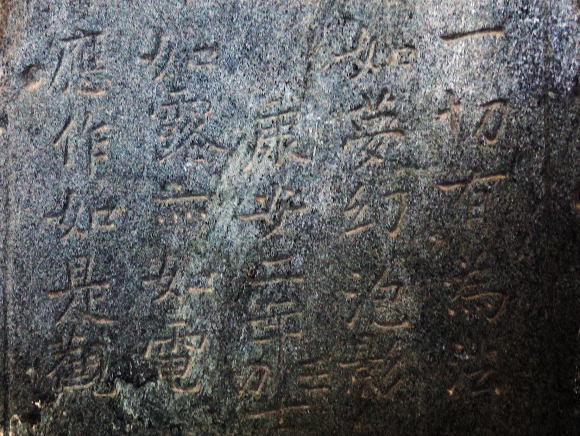 一切有為法
如夢幻泡影
康二年
如露亦如電
應作如是觀